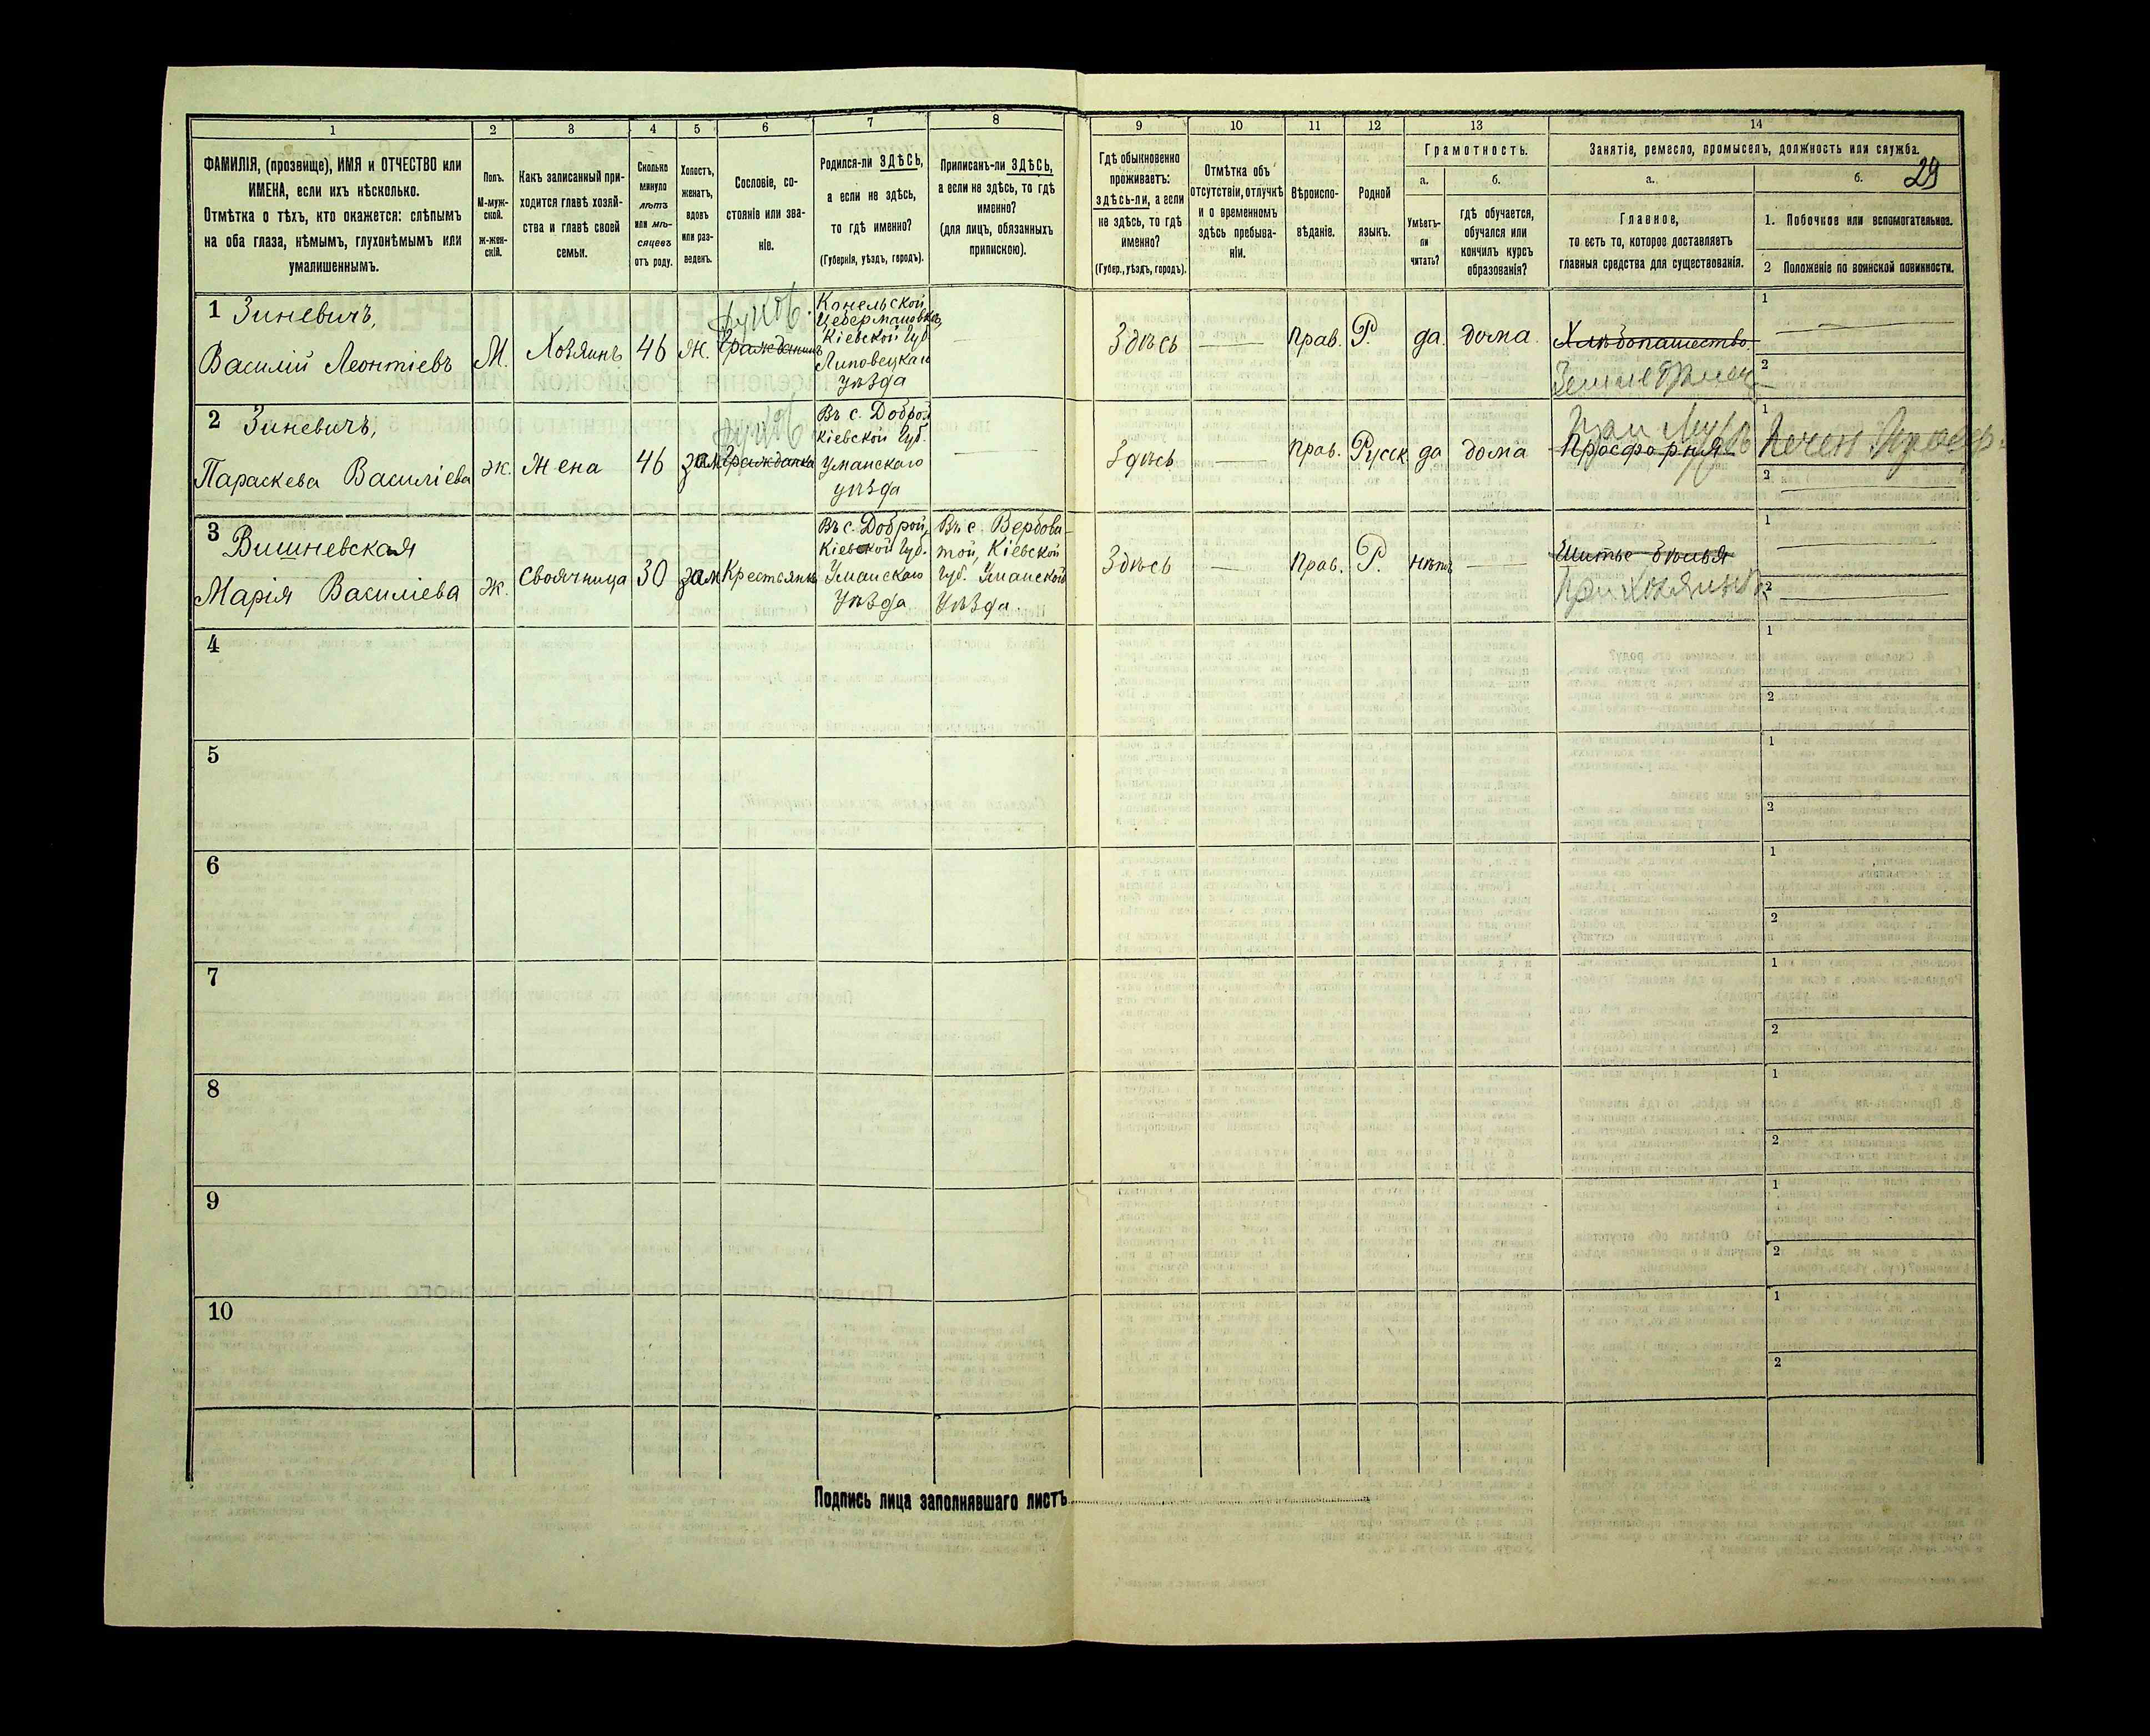 1
2
3
4
5
6
7
8
ФАМИЛІЯ, (прозвище), ИМЯ и ОТЧЕСТВО или
ИМЕНА, если ихъ нѣсколько.
Отмѣтка о тѣхъ, кто окажется: слѣпымъ
на оба глаза, нѣмымъ, глухонѣмымъ или
умалишеннымъ.
Полъ.
М-муж-
ской.
ж-жен-
скій.
Какъ записанный при-
ходится главѣ хозяй-
ства и главѣ своей
семьи.
Сколько
минуло
лѣтъ
или мѣ-
сяцевъ
отъ роду.
Холостъ,
женатъ,
вдовъ
или раз-
веденъ.
Сословіе, со-
стояніе или зва-
ніе.
Родился-ли ЗДѢСЬ,
а если не здѣсь,
то гдѣ именно?
(Губернія, уѣздъ, городъ).
Приписанъ-ли ЗДѢСЬ,
а если не здѣсь, то гдѣ
именно?
(для лицъ, обязанныхъ
припискою).
9
10
11
12
13
14
Гдѣ обыкновенно
проживаетъ:
здѣсь-ли, а если
не здѣсь, то гдѣ
именно?
(Губер., уѣздъ, городъ).
Отмѣтка объ
отсутствіи, отлучкѣ
и о временномъ
здѣсь пребыва-
ніи.
Вѣроиспо-
вѣданіе.
Родной
языкъ.
Грамотность.
а.
б.
Умѣетъ-
ли
читать?
гдѣ обучается,
обучался или
кончилъ курсъ
образованія?
Занятіе, ремесло, промыселъ, должность или служба.
а.
б.
29
Главное,
то есть то, которое доставляетъ
главныя средства для существованія.
1. Побочное или вспомогательное.
2 Положеніе по воинской повинности.
1 Зиневичъ,
Василій Леонтіевъ
М.
Хозяинъ
46
Ж.
Гражданинъ
Конельской
Кіевской Губ.
Липовецкаго
уѣзда
Здѣсь
Прав.
Р.
да.
дома.
Хлѣбопашество.
1
2
2 Зиневичъ,
Параскева Василіева
ж.
Жена
46
зам
Гражданка
Въ с. Доброй
Кіевской Губ.
Уманскаго
уѣзда
Здѣсь
Прав.
Русск
да
дома
Просфорня
1
2
3 Вишневская
Марія Василіева
ж.
Своячница
30
зам
Крестьянка
Въ с. Доброй,
Кіевской Губ.
Уманскаго
Уѣзда
Въ с. Вербова-
той, Кіевской
Губ. Уманского
Уѣзда.
Здѣсь
Прав.
Р.
нѣтъ
Шитье бѣлья
1
2
4
1
2
5
1
2
6
1
2
7
1
2
8
1
2
9
1
2
10
1
2
Подпись лица заполнявшаго листъ